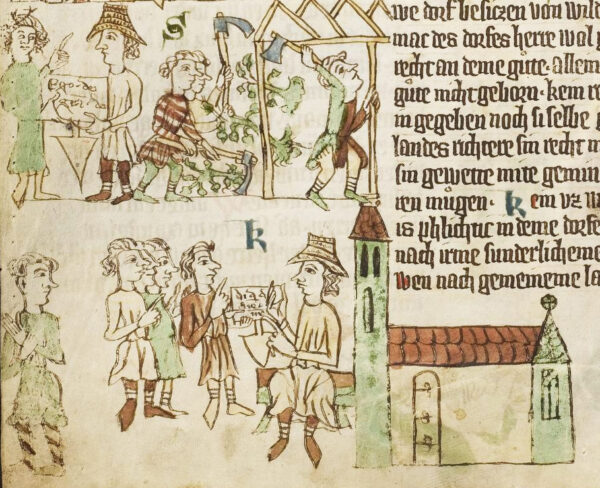 S
Ego de
k
we dorf besiczen von wild
mac des dorfes herre wol
recht an deme gute. allem
gute nicht geborn. kem re
in gegeben noch si selbe
landes richtere sin recht
sin gewette mite gemin
ren mugen. kem vz
is phlichtic in deme dorfe
nach irme sunderlicheme
wen nach gemeineme la